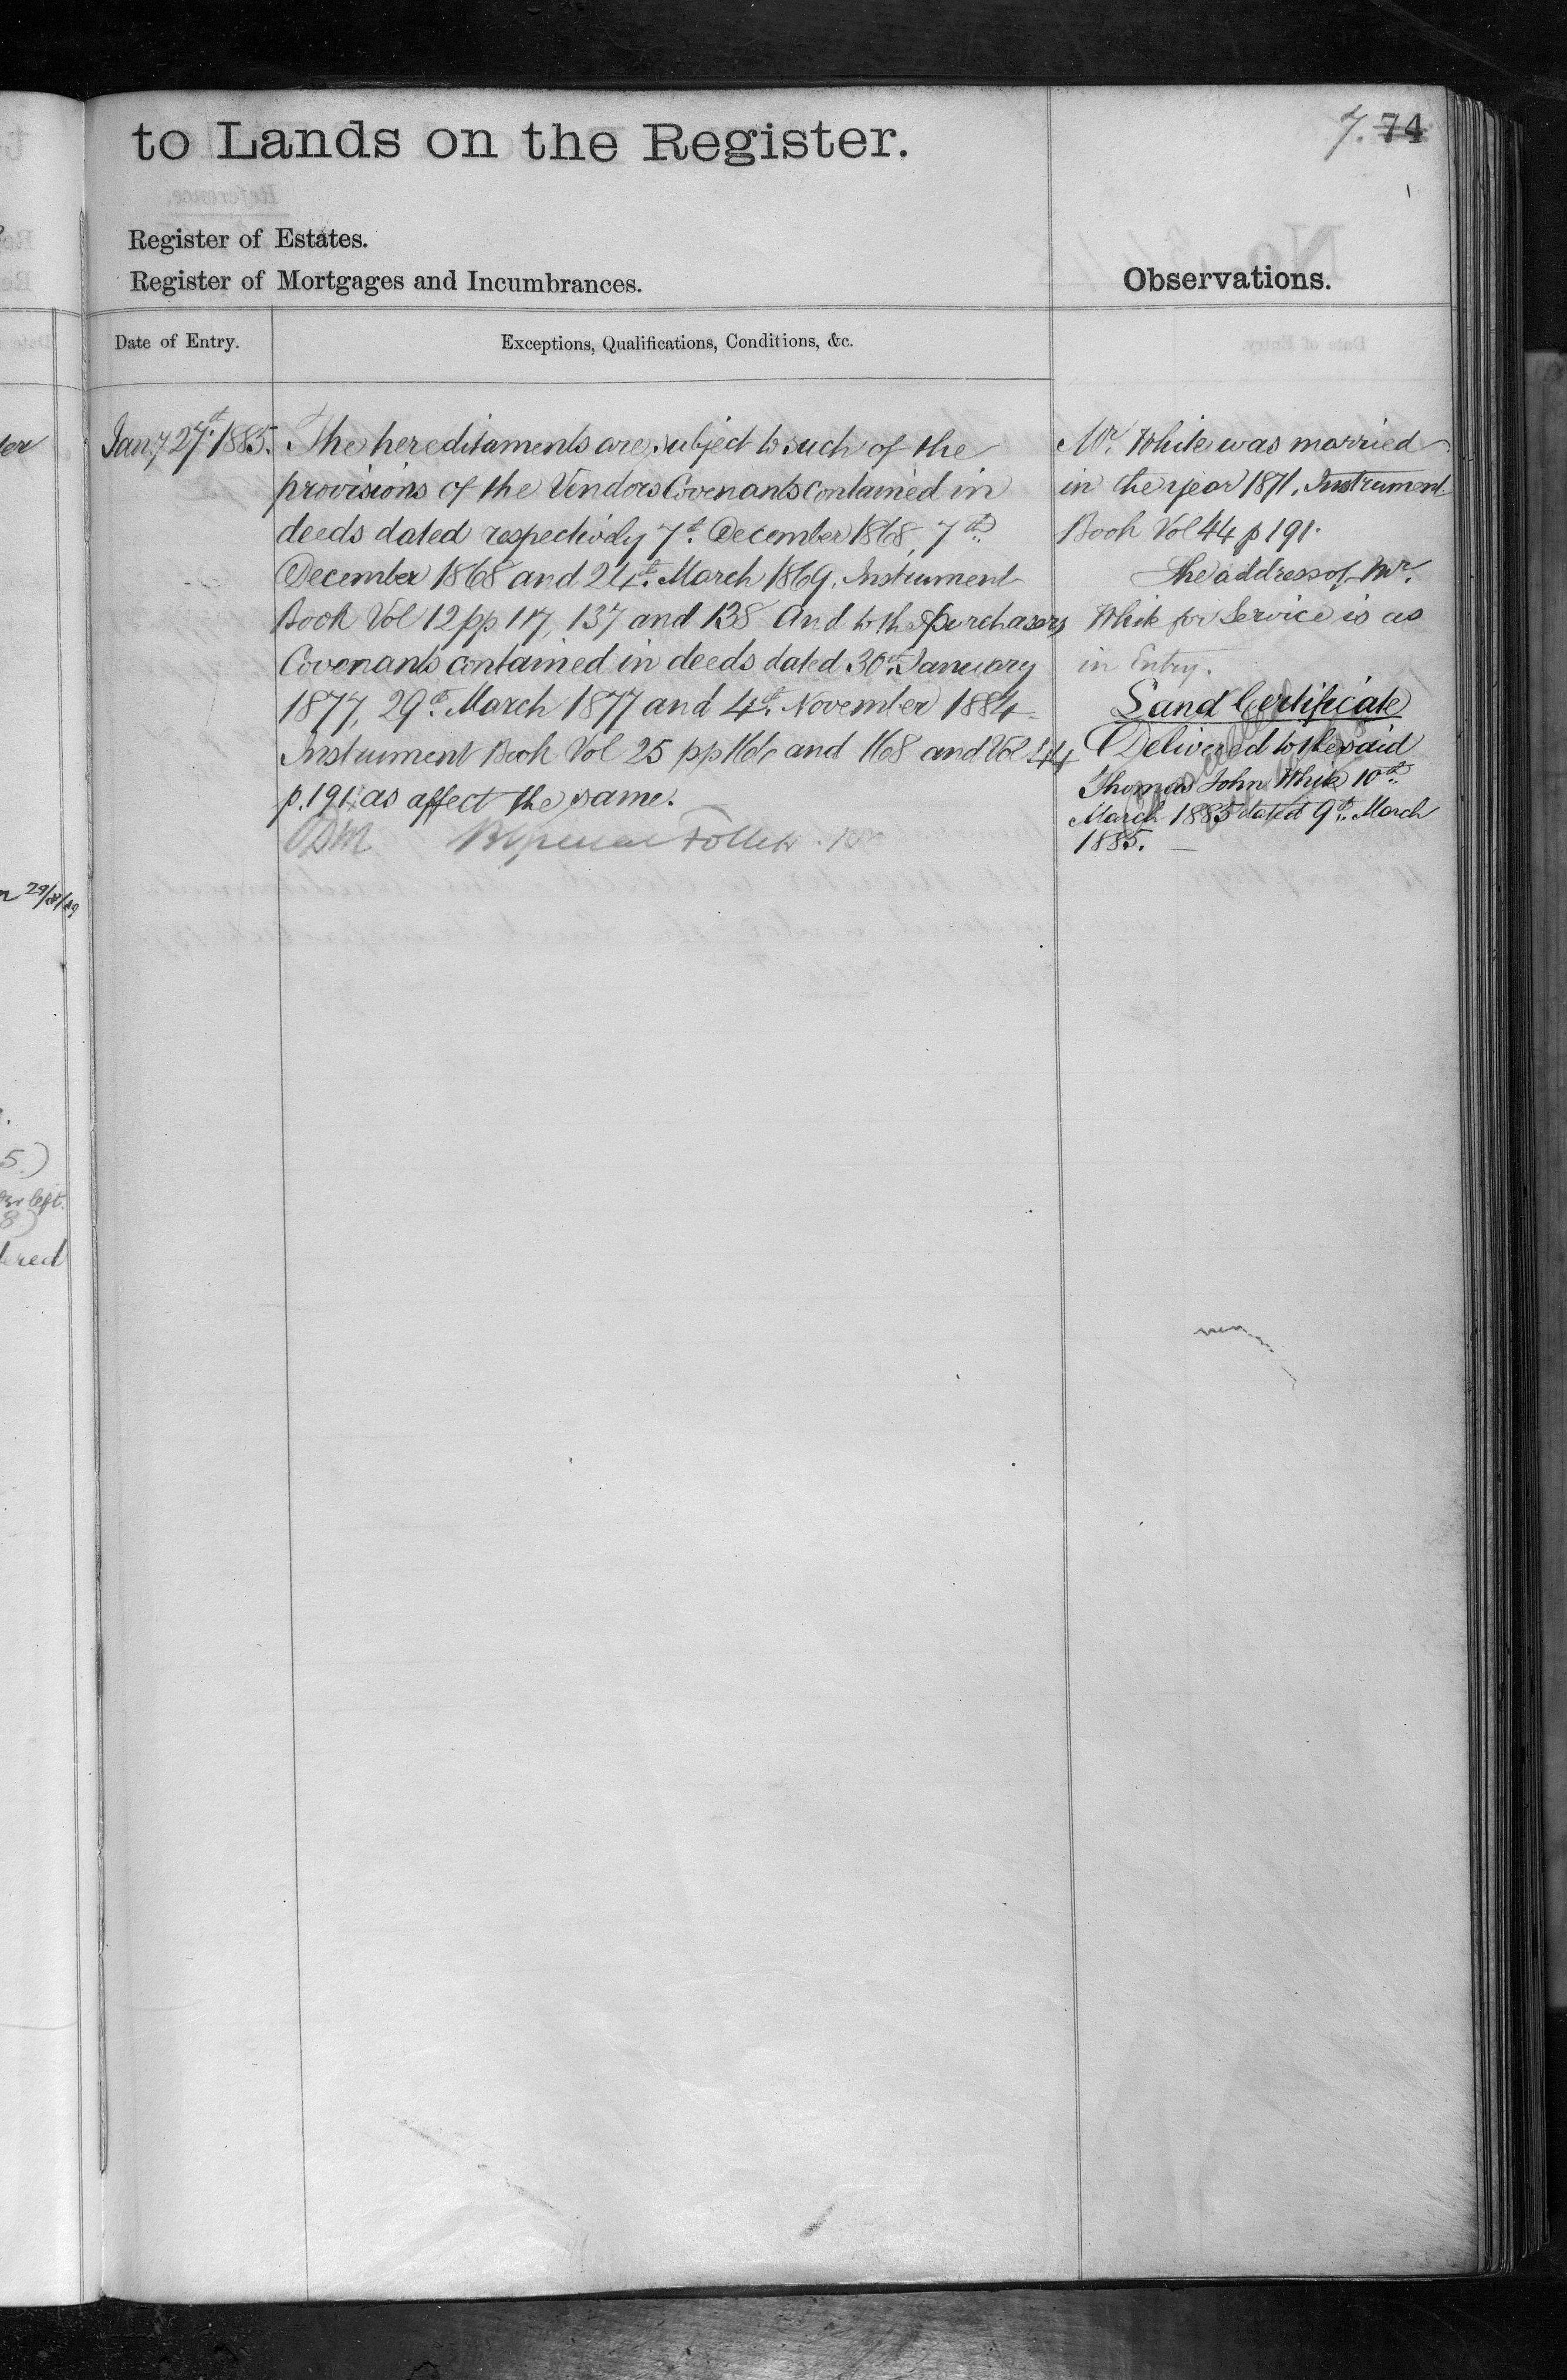 to Lands on the Register.
7. 74
Register of Estates.
Register of Mortgages and Incumbrances.
Observations.
Date of Entry.
Exceptions, Qualifications, Conditions, &c.
Jany 27th 1885.
The hereditaments are subject to such of the
provisions of the Vendors Covenants contained in
deeds dated respectively 7th December 1868, 7th
December 1868 and 24th March 1869. Instrument
Book Vol 12 pp 117, 137 and 138 And to the purchasers
Covenants contained in deeds dated 30th January
1877, 29th March 1877 and 4th November 1884
Instrument Book Vol 25 pp 166 and 168 and Vol 44
p. 191 as affect the same.
Mr. White was married
in the year 1871. Instrument
Book Vol 44 p 191.
The address of Mr.
White for Service is as
in Entry.
Land Certificate
Delivered to the said
Thomas John White 10th
March 1885 dated 9th March
1885.
29/8/89
5.)
left.
8.)